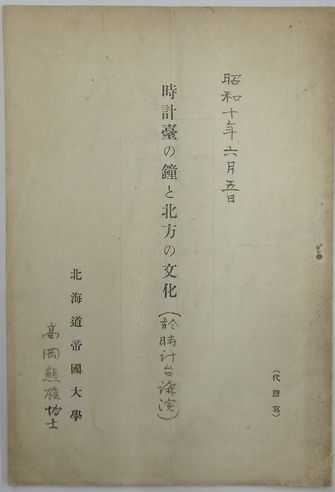 (代謄寫)
昭和十年六月五日
時計臺の鐘と北方の文化(於時計台講演)
北海道帝國大學
高岡熊雄博士